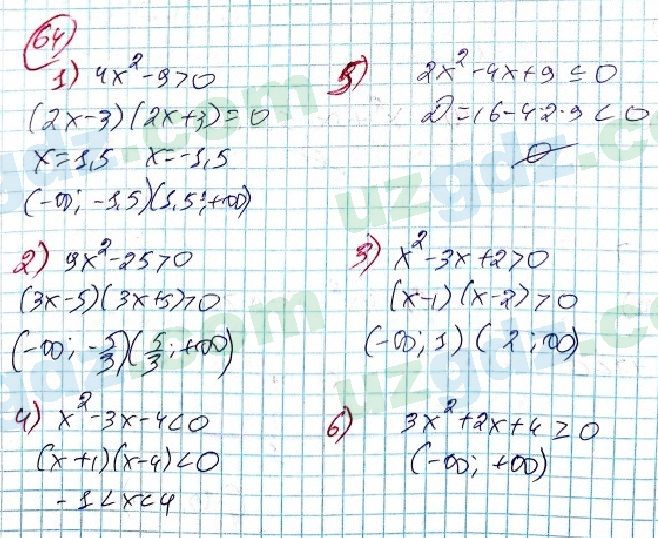 64
1) 4x²-9>0
(2x-3)(2x+3)=0
x=1,5 x=-1,5
(-∞; -1,5)(1,5;+∞)
5) 2x²-4x+9≤0
D=16-42·9<0
∅
2) 9x²-25>0
(3x-5)(3x+5)>0
(-∞; -5/3)(5/3;+∞)
3) x²-3x+2>0
(x-1)(x-2)>0
(-∞; 1)(2;∞)
4) x²-3x-4<0
(x+1)(x-4)<0
-1<x<4
6) 3x²+2x+4≥0
(-∞; +∞)
uzgdz.com